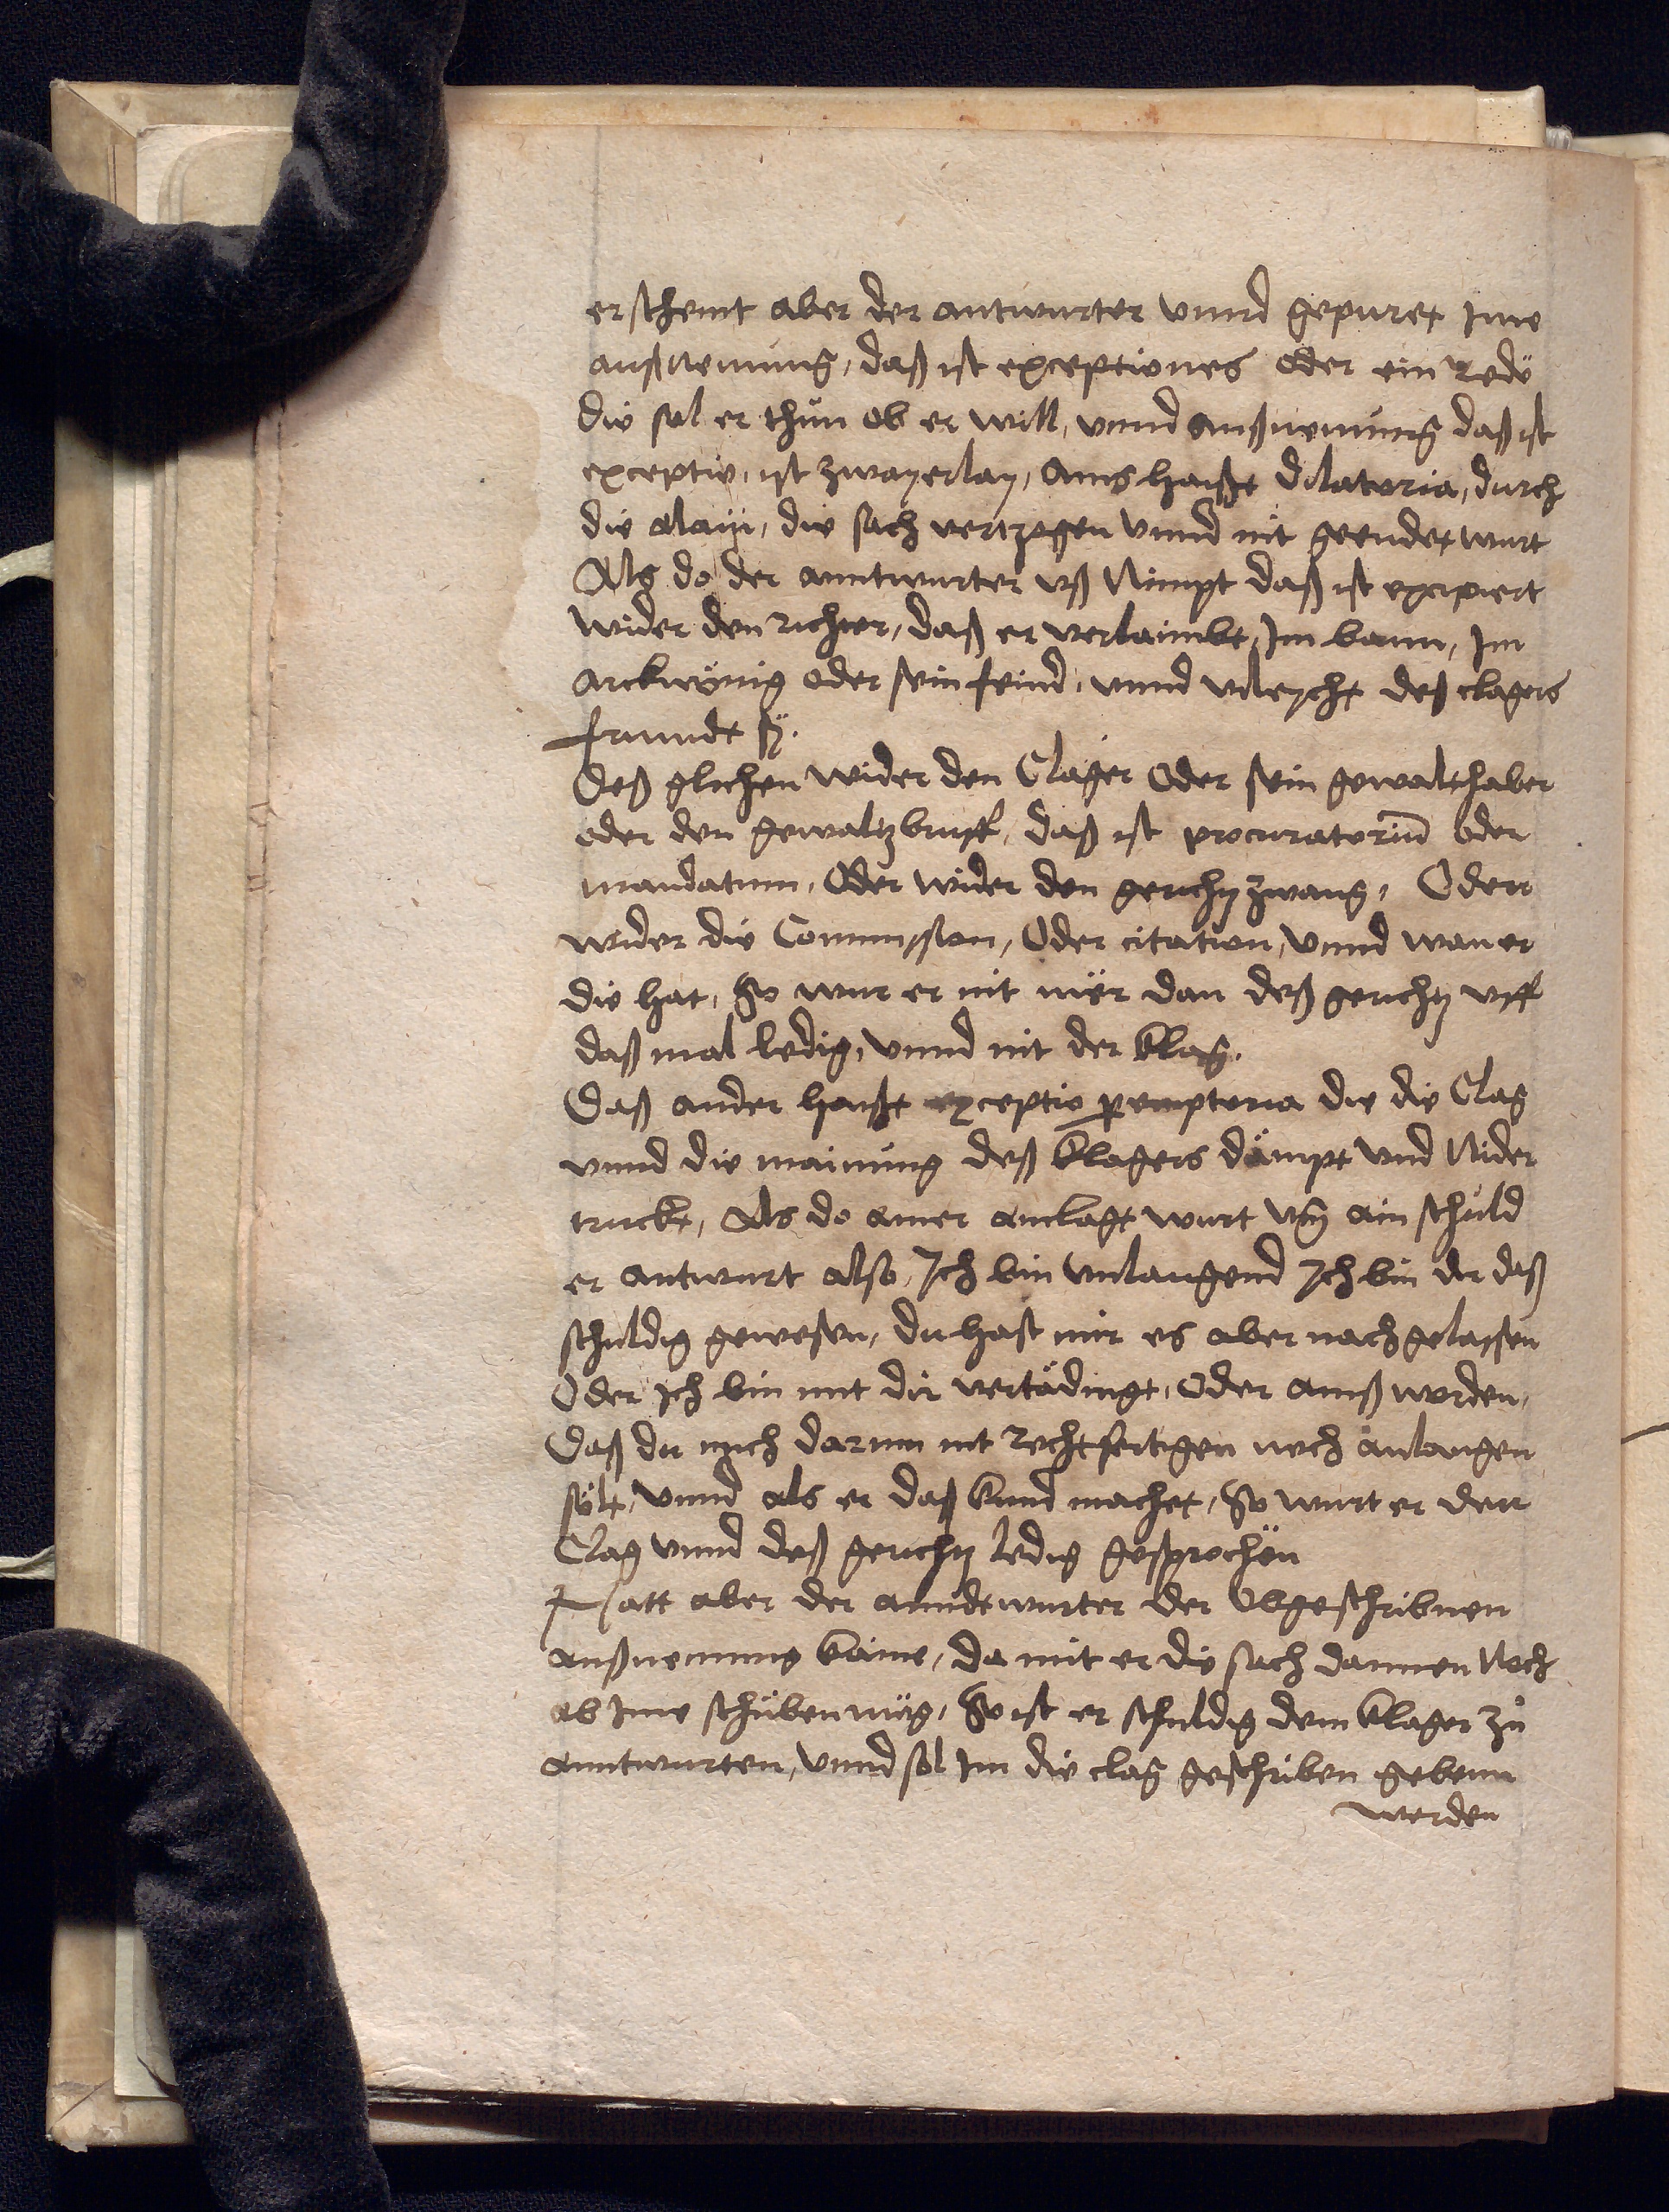 erscheint aber der antwurter vnnd gepuret Ime
außnemung, daß ist exceptiones oder ein rede
die sol er thun ob er will, vnnd außnemung daß ist
exceptio, ist zwayerlay, ains haißt dilatoria, durch
die alain, die sach vertzogen vnnd nit geendet wurt
Als do der anntwurter vß Nimpt daß ist excipiert
wider den richter, daß er verlaimbt, Im bann, Im
arckwönig oder sein feind, vnnd vileycht deß clagers
frunndt sÿ.
Deß glichen wider den Clager Oder sein gewalthaber
oder den gewaltzbrieff, daß ist procuratoriu͂ oder
mandatum, Oder wider den gerichtz zwang, Oderr
wider die Commission, Oder citation, vnnd wan er
die hat, So wur er nit mër dan deß gerichtz vff
daß mal ledig, vnnd nit der klag.
Daß ander haißt exceptio p̱emptoria die die Clag
vnnd die mainung deß klagers dämpt vnd Nider
truckt, Als do ainer anclagt wurt vm͂ ain schuld
er antwurt also, Ich bin vnlaugend Ich bin dir daß
schuldig gewesen, du hast mir es aber nachgelassen
Oder Ich bin mit dir vertädingt, Oder ainß worden,
Daß du mich darum nit rechtfertigen noch anlangen
sölt, vnnd als er daß kund machet, So wurt er derr
Clag vnnd deß gerichtz ledig gesprochen
Hatt aber der anndtwurter der Obgeschribnen
außnemung kaine, da mit er die sach dannen Noch
ab Ime schüben müg, So ist er schuldig dem klager zů
anntwurten, vnnd sol Im die clag geschriben gebenn
werden